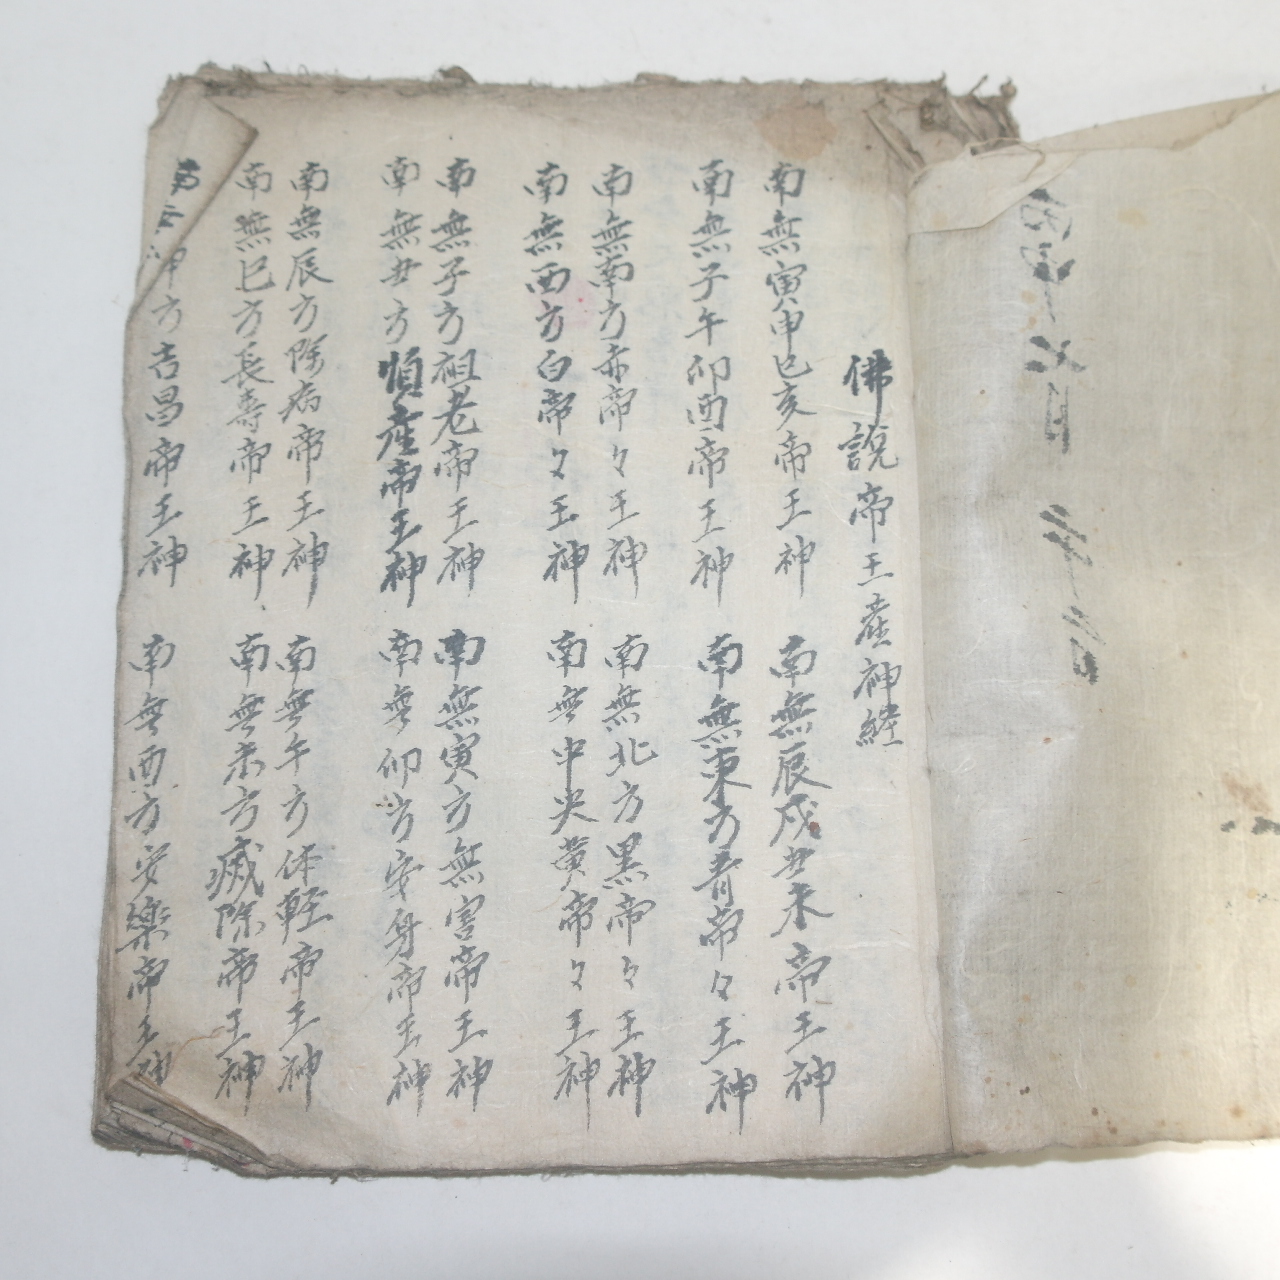 佛說帝王産神経
南無寅申巳亥帝王神 南無辰戌丑未帝王神
南無子午卯酉帝王神 南無東方青帝々王神
南無南方赤帝々王神 南無北方黑帝々王神
南無西方白帝々王神 南無中央黄帝々王神
南無子方祖老帝王神 南無寅方無害帝王神
南無丑方順産帝王神 南無卯方安身帝王神
南無辰方除病帝王神 南無午方体軽帝王神
南無巳方長壽帝王神 南無未方滅除帝王神
申方吉昌帝王神 南無酉方安樂帝王神